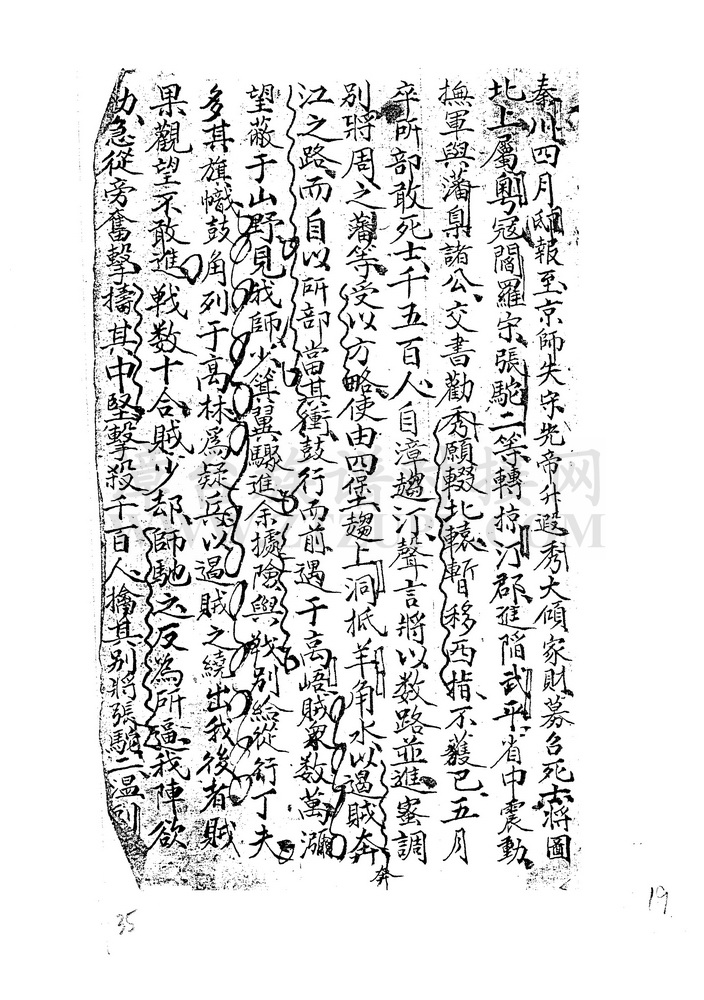 秦川四月邸報至京師失守先帝升遐秀大傾家財募召死士将圖
北上屬粵冦閻羅宋張駝二等轉掠汀郡進陷武平省中震動
撫軍與藩臬諸公交書勸秀願輟北轅暫移西指不獲已五月
卒所部敢死士千五百人自漳趨汀聲言將以数路並進蜜調
别將周之藩等受以方略使由四堡趨上洞抵羊角水以遏賊奔
江之路而自以所部當其衝鼓行而前遇于高峿賊衆数萬瀰
望蔽于山野見我師少箕翼驟進余據險與戦别給從行丁夫
多其旗幟鼓角列于高林爲疑兵以遏賊之繞出我後者賊
果觀望不敢進戦数十合賊少却師馳之反為所逼我陣欲
急從旁奮擊擣其中堅擊殺千百人擒其别將張駝二温
奔
35
19